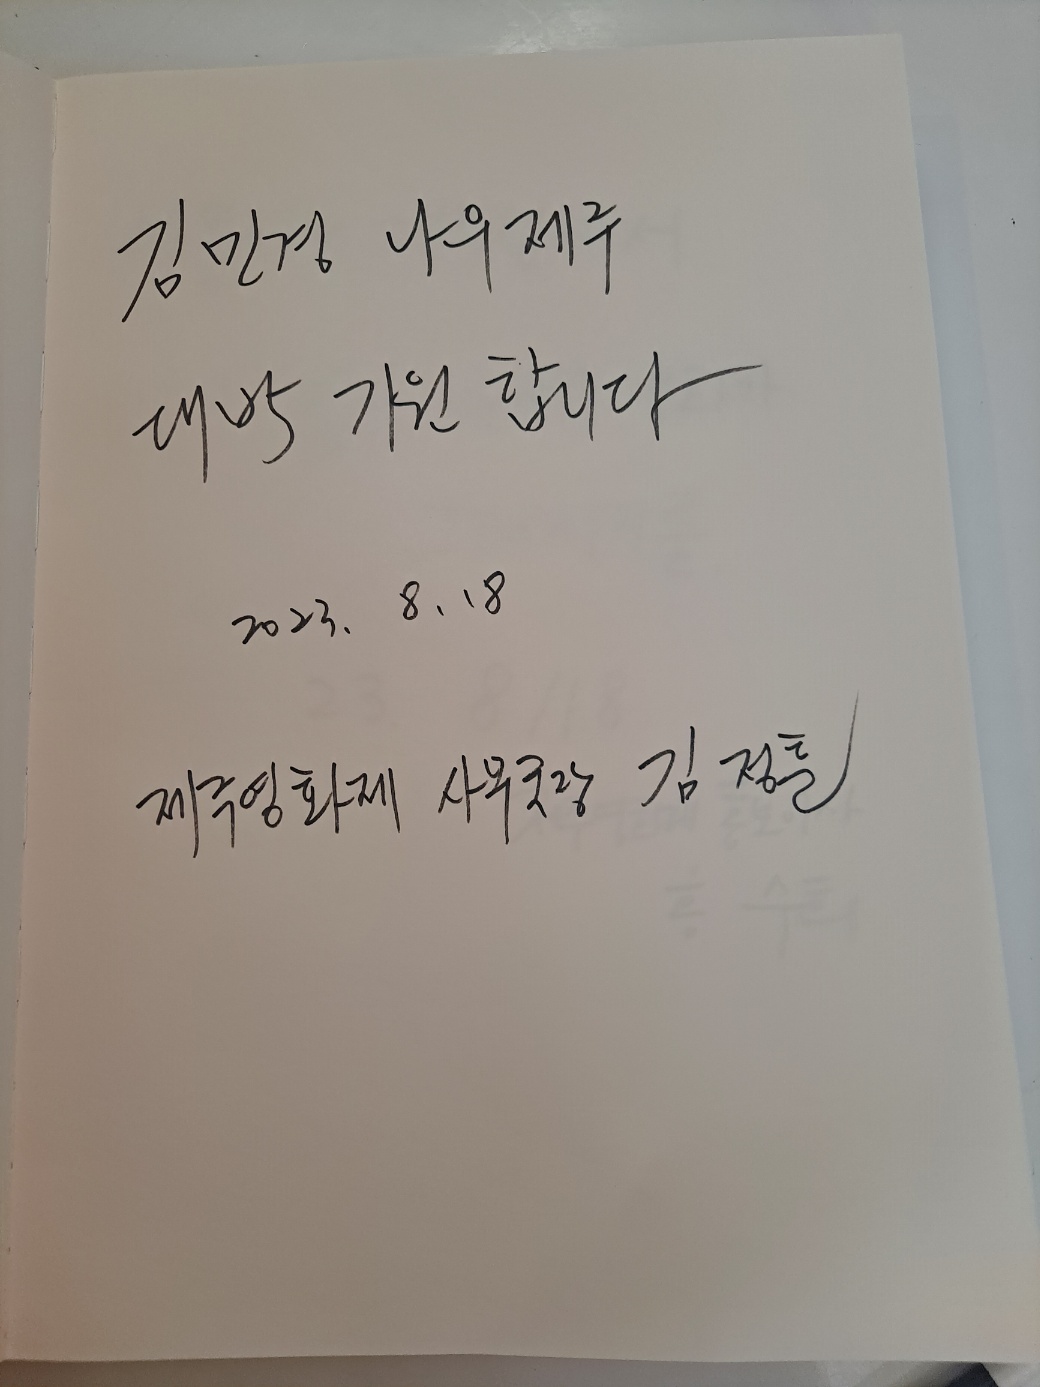 김민경 나우제주
대박 기원 합니다
2023. 8. 18
제주영화제 사무국장 김정훈